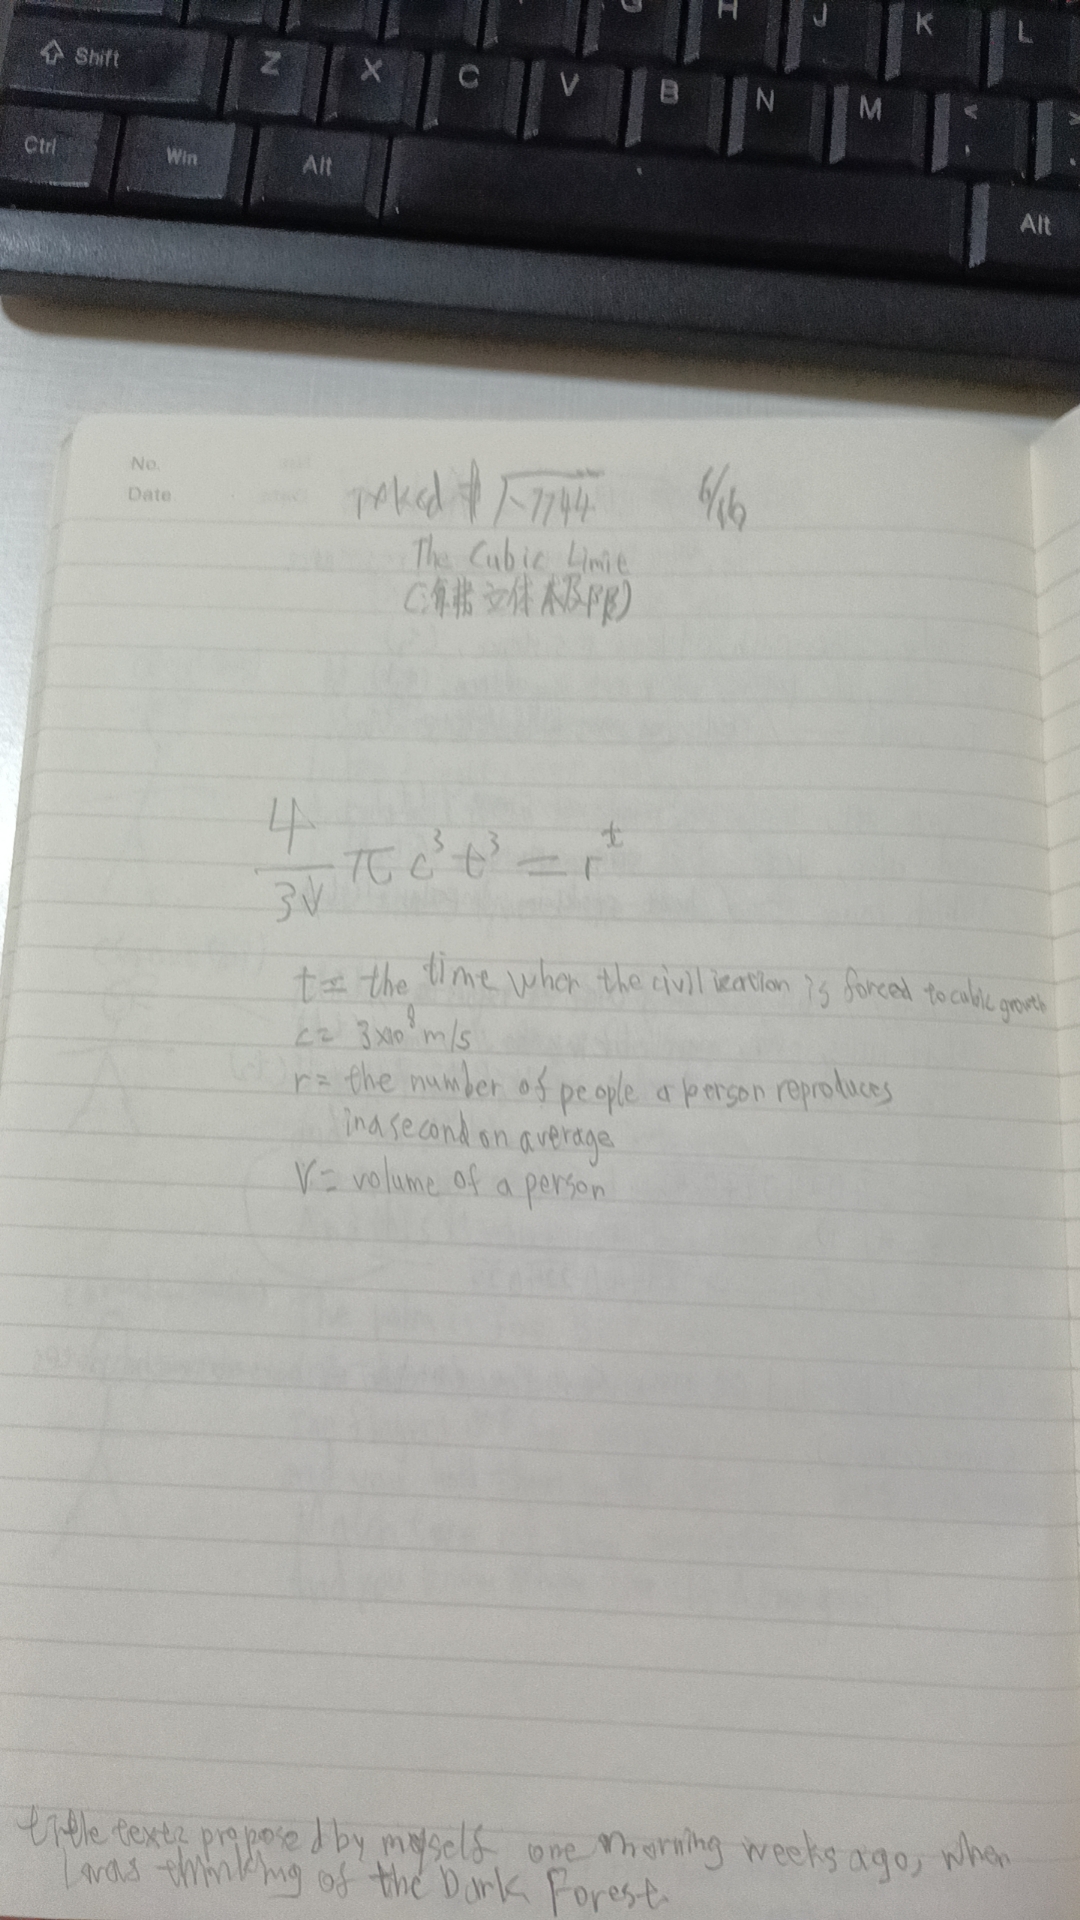 G H J K L
Shift Z X C V B N M <
, >
.
Ctrl Win Alt Alt
No.
Date
#√-7744 6/16
The Cubic Limit
立体极限)
4/3V π c³ t³ = r^t
t= the time when the civilization is forced to cubic growth
c= 3×10⁸ m/s
r= the number of people a person reproduces
in a second on average
V= volume of a person
title text: proposed by myself one morning weeks ago, when
I was thinking of the Dark Forest.